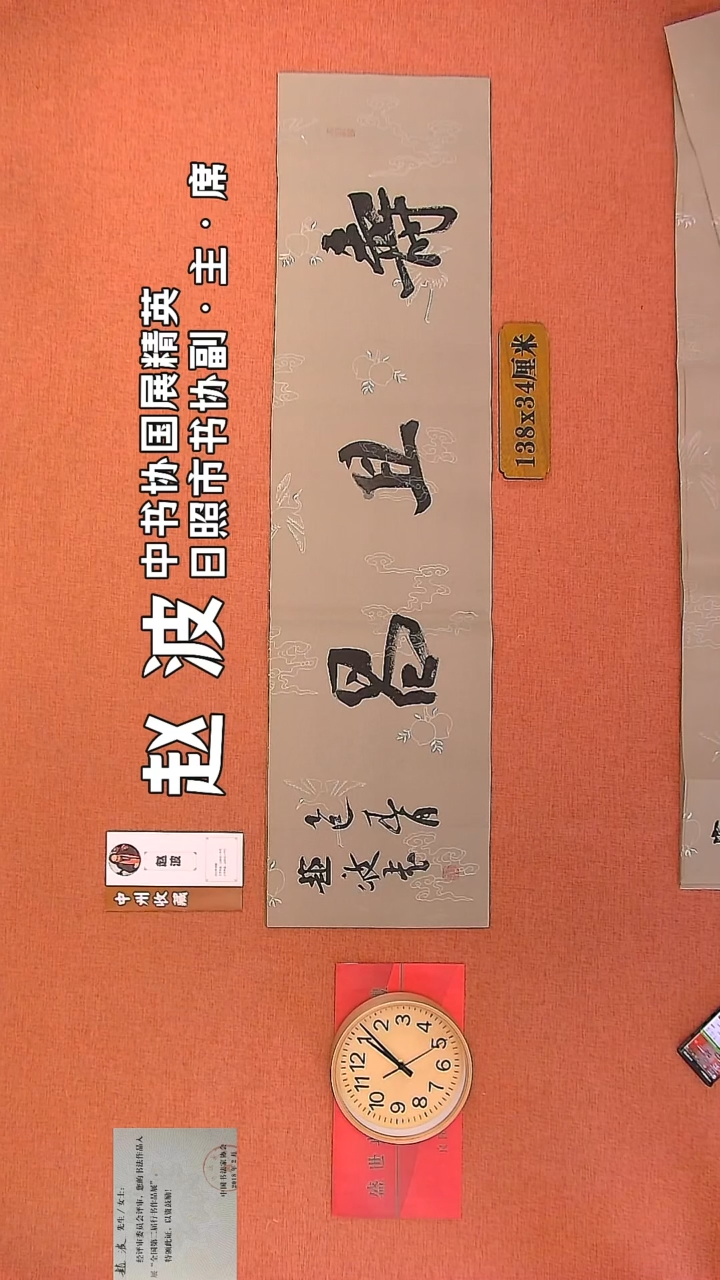 赵波
中书协国展精英
日照市书协副·主·席
中州收藏
赵波
寿且昌
赵波书
138x34厘米
12
1
2
3
4
5
6
7
8
9
10
11
盛世
赵波 先生/女士:
经评审委员会评审,您的书法作品入
展“全国第二届行书作品展”。
特颁此证,以资鼓励!
中国书法家协会